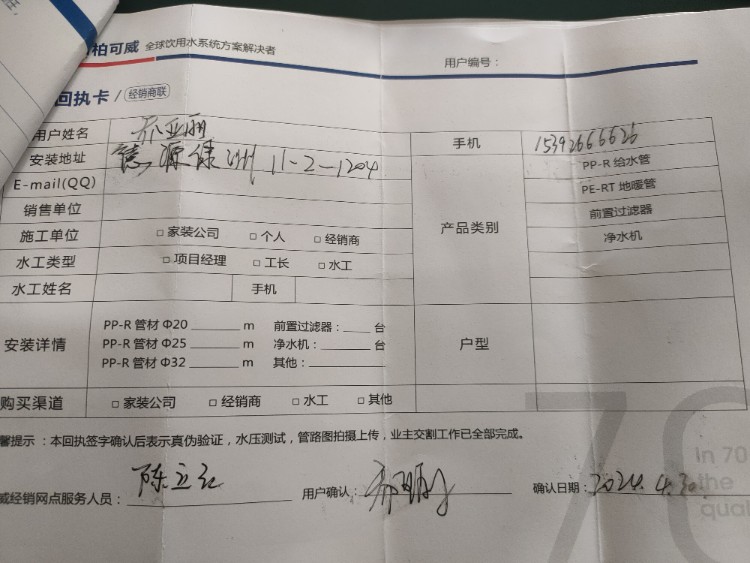 柏可威 全球饮用水系统方案解决者
用户编号：
回执卡 / 经销商联
用户姓名 乔亚丽 手机 15392666626
安装地址 德源绿洲 11-2-1204
E-mail(QQ)
销售单位
产品类别
PP-R 给水管
PE-RT 地暖管
前置过滤器
净水机
施工单位 □ 家装公司 □ 个人 □ 经销商
水工类型 □ 项目经理 □ 工长 □ 水工
水工姓名 手机
安装详情
PP-R 管材 Φ20 ______ m 前置过滤器：____ 台
PP-R 管材 Φ25 ______ m 净水机：______ 台
PP-R 管材 Φ32 ______ m 其他：________
户型
购买渠道 □ 家装公司 □ 经销商 □ 水工 □ 其他
馨提示：本回执签字确认后表示真伪验证，水压测试，管路图拍摄上传，业主交割工作已全部完成。
威经销网点服务人员：陈立红 用户确认： 确认日期：2024.4.30
70
In 70
the
qual